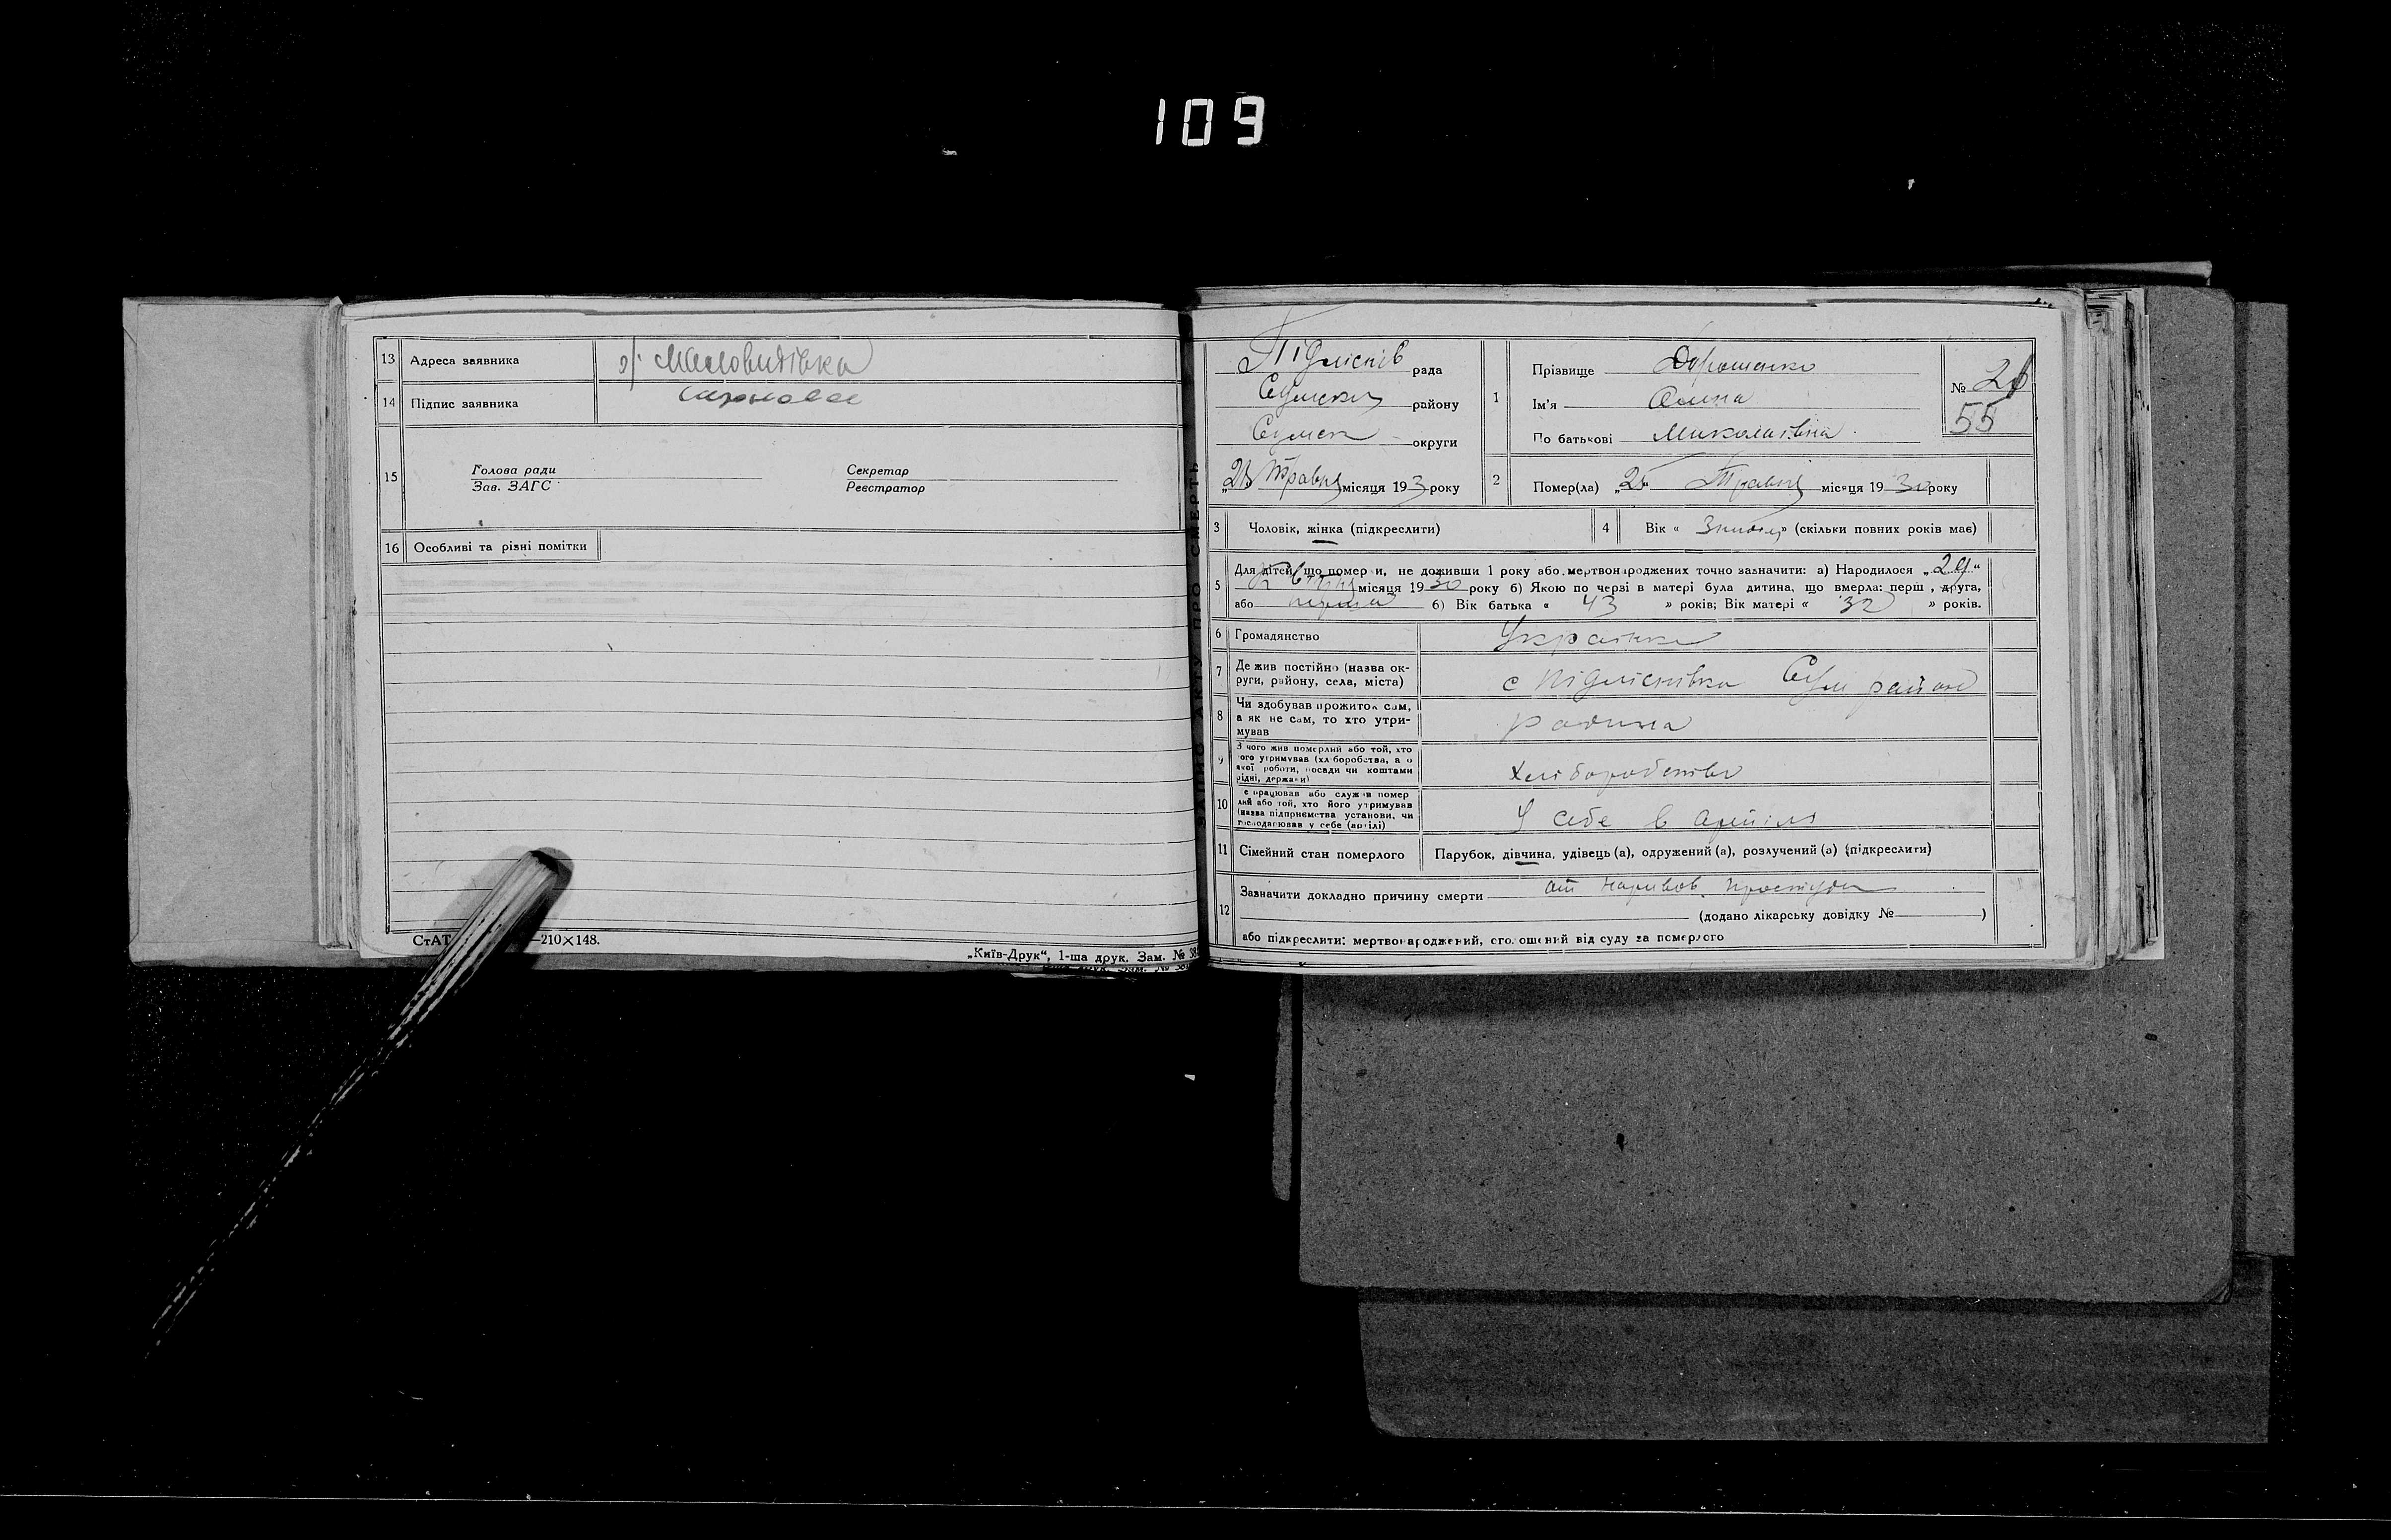 109
13 Адреса заявника
14 Підпис заявника
15 Голова ради Секретар
Зав. ЗАГС Реєстратор
16 Особливі та різні помітки
СтАТ —210×148.
„Київ-Друк“, 1-ша друк. Зам. №
ЗАПИС АКТУ ПРО СМЕРТЬ
Підліснів рада
району
округи
Травня місяця 193 року
1 Прізвище Дорошенко
Ім'я
По батькові Миколаївна
№ 26
55
2 Помер(ла) „ Травня місяця 1930 року
3 Чоловік, жінка (підкреслити)
4 Вік « » (скільки повних років має)
5 Для дітей, що померли, не доживши 1 року або мертвонароджених точно зазначити: а) Народилося „29“
Квітня місяця 1930 року б) Якою по черзі в матері була дитина, що вмерла: перша, друга,
або перша б) Вік батька « 43 » років; Вік матері « 32 » років.
6 Громадянство Українка
7 Де жив постійно (назва ок-
руги, району, села, міста) с Підліснівка Сум район
8 Чи здобував прожиток сам,
а як не сам, то хто утри-
мував родина
9 З чого жив померлий або той, хто
його утримував (хліборобства, а о
якої роботи, посади чи коштами
рідні, держави) Хліборобство
10 Де працював або служив помер
лий або той, хто його утримував
(назва підприємства установи, чи
господарював у себе (артілі) У себе в артілі
11 Сімейний стан померлого Парубок, дівчина, удівець (а), одружений (а), розлучений (а) (підкреслити)
12 Зазначити докладно причину смерти от нарывов простуди
(додано лікарську довідку № )
або підкреслити: мертвонароджений, оголошений від суду за померлого